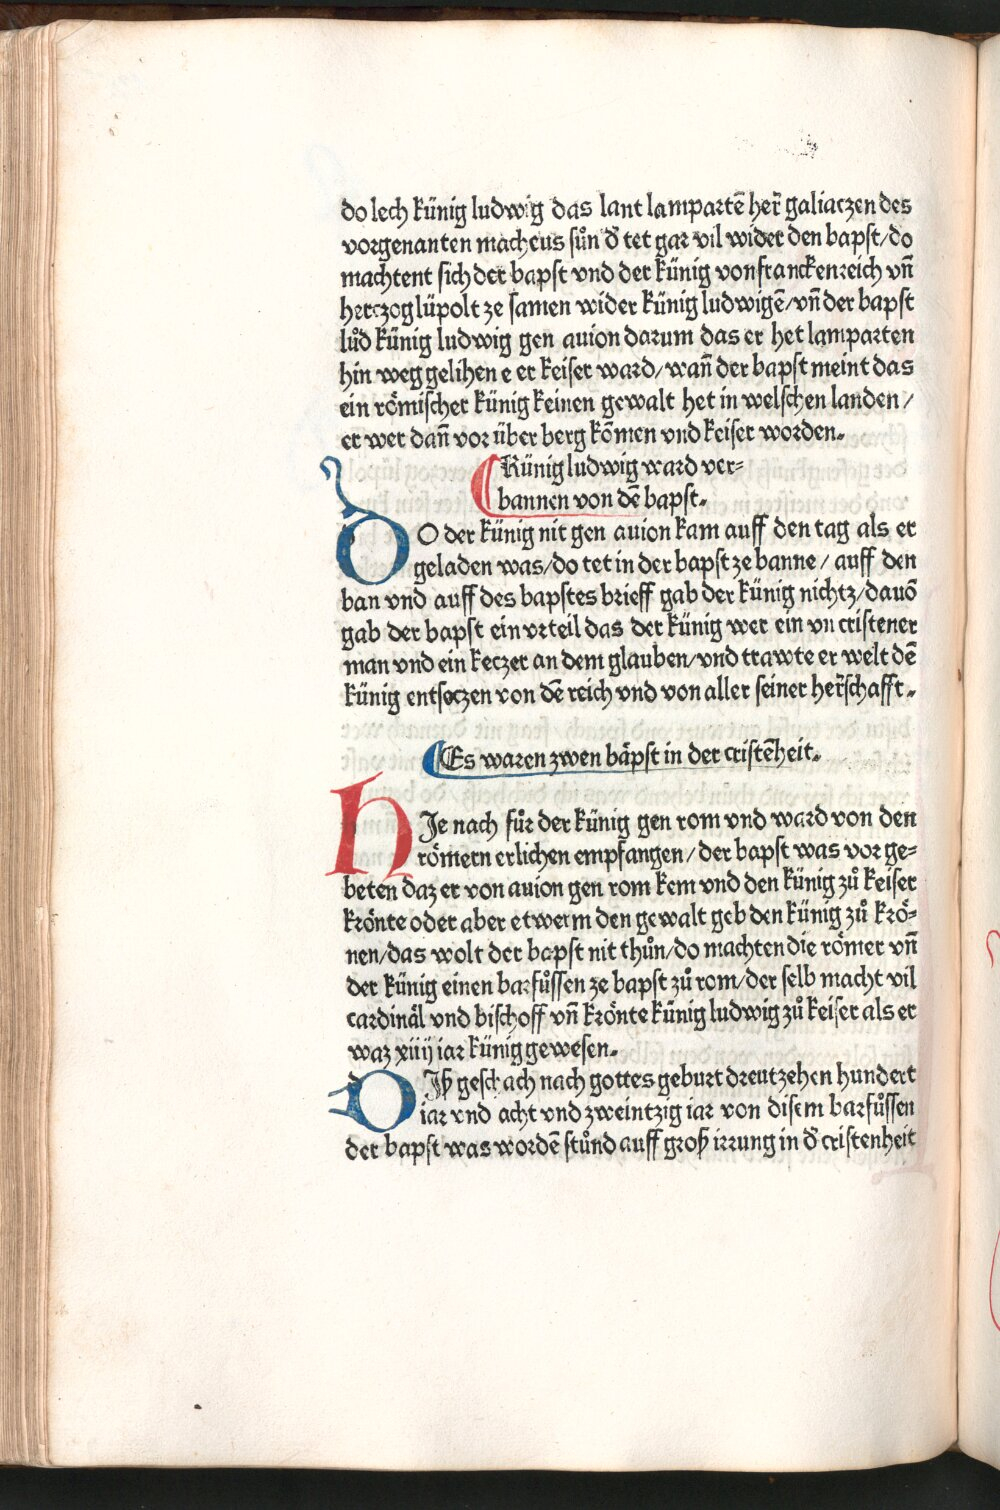 do lech künig ludwig das lant lampartē her̄ galiaczen des
vorgenanten macheus sůn dˀ tet gar vil wider den bapst/do
machtent sich der bapst vnd der künig von franckenreich vn̄
herczog lüpolt ze samen wider künig ludwigē/vn̄ der bapst
lůd künig ludwig gen auion darum das er het lamparten
hin weg gelihen e er keiser ward/wan̄ der bapst meint das
ein römischer künig keinen gewalt het in welschen landen/
er wer dan̄ vor über berg kōmen vnd keiser worden.
Künig ludwig ward ver⸗
bannen von dē bapst.
DO der künig nit gen auion kam auff den tag als er
geladen was/do tet in der bapst ze banne/auff den
ban vnd auff des bapstes brieff gab der künig nichtz/dauō
gab der bapst ein vrteil das der künig wer ein vn cristener
man vnd ein keczer an dem glauben/vnd trawte er welt dē
künig entseczen von dē reich vnd von aller seiner her̄schafft.
Es waren zwen bäpst in der cristēheit.
HJe nach fůr der künig gen rom vnd ward von den
römern erlichen empfangen/der bapst was vor ge⸗
beten daz er von auion gen rom kem vnd den künig zů keiser
krönte oder aber etwem den gewalt geb den künig zů krö⸗
nen/das wolt der bapst nit thůn/do machten die römer vn̄
der künig einen barfůssen ze bapst zů rom/der selb macht vil
cardinäl vnd bischoff vn̄ krönte künig ludwig zů keiser als er
waz xiiij iar künig gewesen.
DJß geschach nach gottes geburt dreutzehen hundert
iar vnd acht vnd zweintzig iar von disem barfůssen
der bapst was wordē stůnd auff groß irrung in dˀ cristenheit